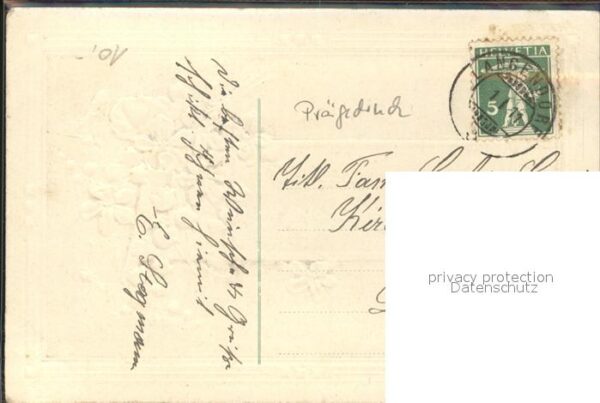 10,-
Die besten Wünsche & Grüße
schickt Ihnen hiemit
E. Stegmann
Prägedruck
HELVETIA
5
LANGENDORF
Tit. Fam.
privacy protection
Datenschutz